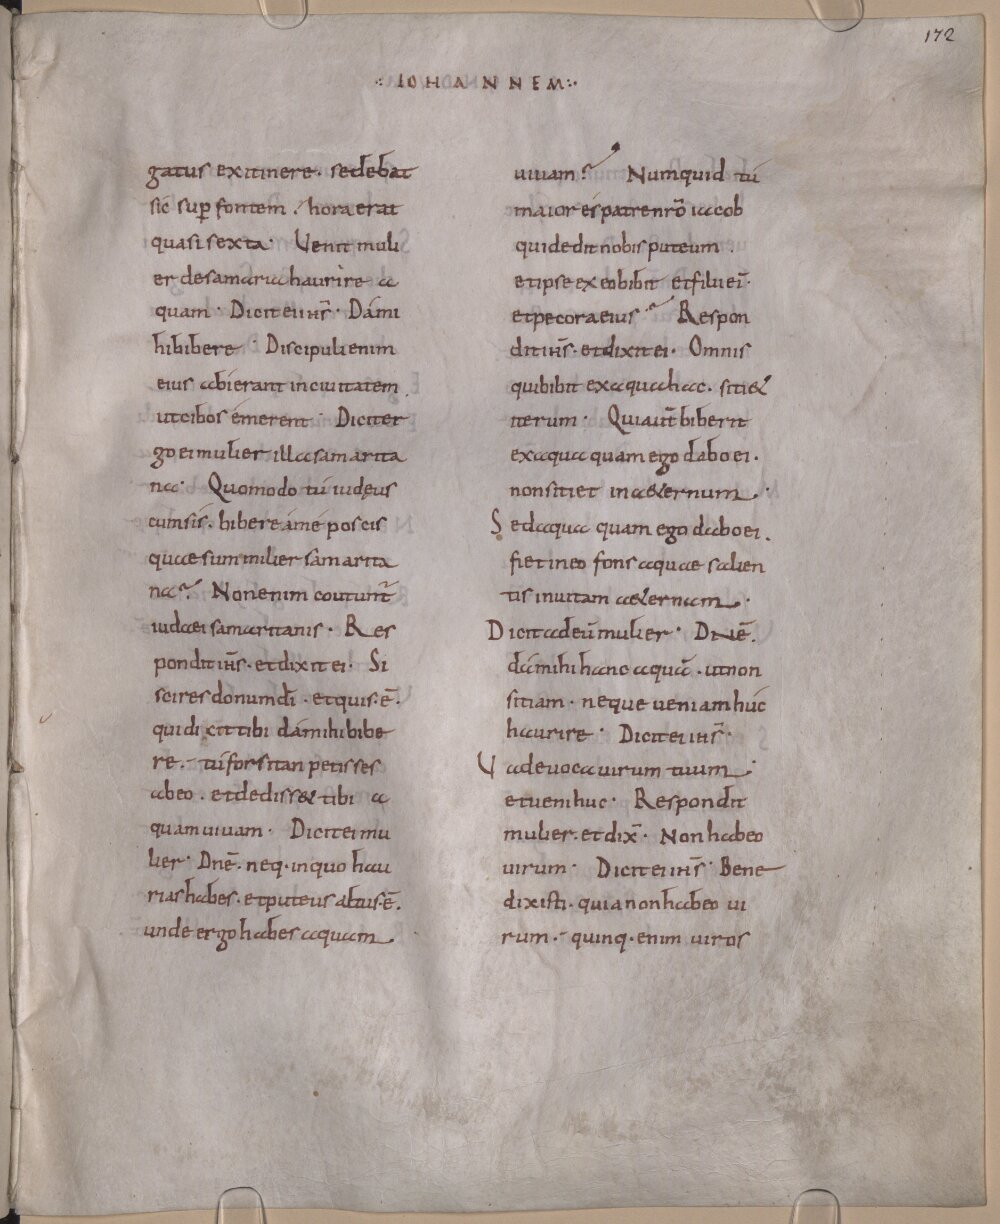 172
·:· IOHANNEM ·:·
gatus exitinere· sedebat
sic sup̱ fontem ·́ hora erat
quasi sexta· Uenit muli
er desamaria haurire a
quam· Dicit ei ih̄s· Dámi
hibibere· Discipuli enim
eius abierant in ciuitatem
ut cibos émerent· Dicit er
go ei mulier illa samarita
na· Quomodo tú iudęus
cum sis· bibere áme poscis
quae sum mulier samarita
na? Non enim coutunt̄
iudaei samaritanis· Res
pondit ih̄s· et dixit ei· Si
scires donum dī· et quis·ē·
qui dicit tibi dámihi bibe
re·́ tú forsitan petisses
abeo· et dedisset tibi a
quam uiuam· Dicit ei mu
lier· Dn̄e· neq· in quo hau
rias habes· et puteus altus·ē·
unde ergo habes aquam
uiuam? Numquid tú
maior és patre nr̄o iacob
qui dedit nobis puteum·
et ipse ex eo bibit et filii ei·
et pecora eius? Respon
dit ih̄s· et dixit ei· Omnis
qui bibit ex aqua hac· sitiet
iterum· Qui aut̄ biberit
ex aqua quam ego dabo ei·
non sitiet in aeternum·
Sed aqua quam ego dabo ei·
fiet in eo fons aquae salien
tis in uitam aeternam·
Dicit ad eū mulier· Dn̄e·
dá mihi hanc aquā· ut non
sitiam· neque ueniam húc
haurire· Dicit ei ih̄s·
Uade uoca uirum tuum·
et ueni huc· Respondit
mulier· et dix̄· Non habeo
uirum· Dicit ei ih̄s· Bene
dixisti· quia non habeo ui
rum·́ quinq· enim uiros